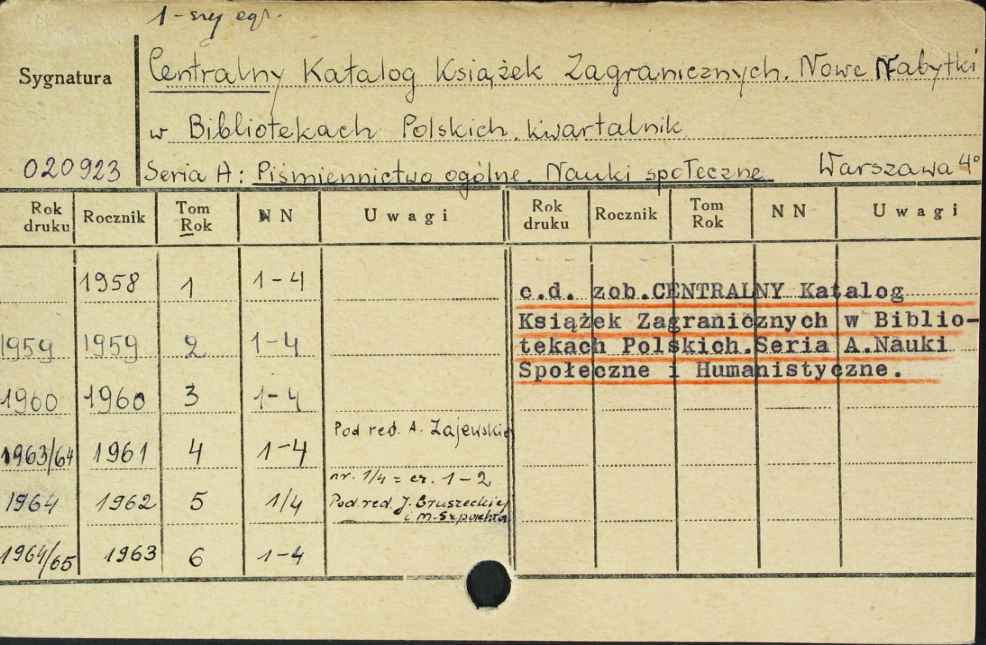 1-szy egz.
Sygnatura
Centralny Katalog Książek Zagranicznych. Nowe Nabytki
w Bibliotekach Polskich. Kwartalnik
020923
Seria A: Piśmiennictwo ogólne. Nauki społeczne Warszawa 4°
Rok druku Rocznik Tom Rok NN Uwagi Rok druku Rocznik Tom Rok NN Uwagi
1958 1 1-4
1959 1959 2 1-4
1960 1960 3 1-4
1963/64 1961 4 1-4 Pod red. A. Zajewskiej
1964 1962 5 1/4 nr. 1/4 = cz. 1-2
Pod red. J. Gruszeckiej
i M.
1964/65 1963 6 1-4
c.d. zob.CENTRALNY Katalog
Książek Zagranicznych w Biblio-
tekach Polskich.Seria A.Nauki
Społeczne i Humanistyczne.